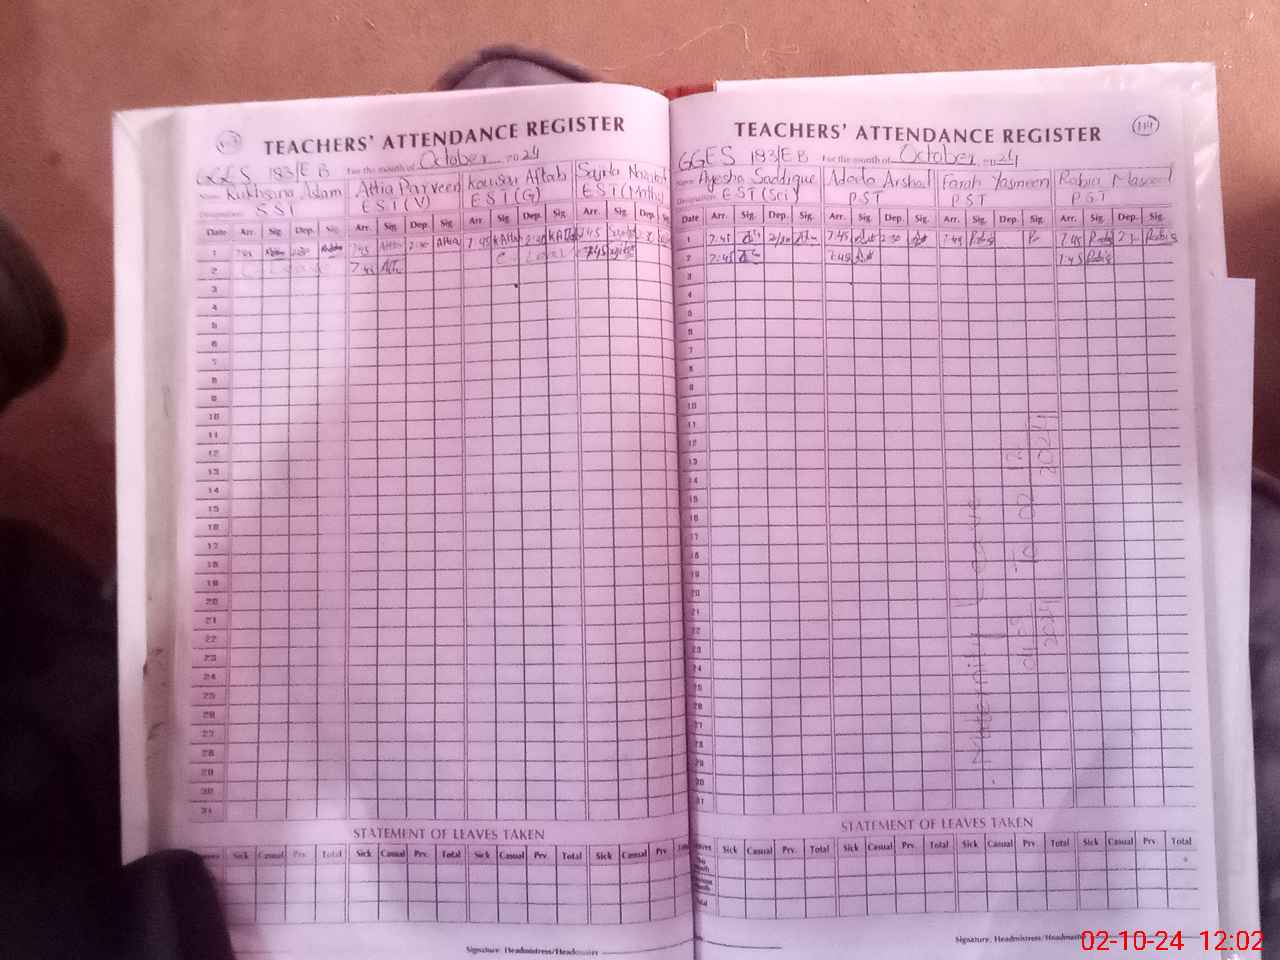 TEACHERS' ATTENDANCE REGISTER
GGES 193/EB For the month of October 2024
Name Rukhsana Aslam Attia Parveen Kousar Aftab Sajida
Designation SST EST(V) EST(G) EST(Math)
Date Arr. Sig. Dep. Sig. Arr. Sig. Dep. Sig. Arr. Sig. Dep. Sig. Arr. Sig. Dep. Sig.
1 7:45 2:30 7:45 Attia 2:30 Attia 7:45 K Aftab 2:30 K Aftab 7:45
2 C - Leave 7:45 C - Leave 7:45
3
4
5
6
7
8
9
10
11
12
13
14
15
16
17
18
19
20
21
22
23
24
25
26
27
28
29
30
31
STATEMENT OF LEAVES TAKEN
Sick Casual Prv. Total Sick Casual Prv. Total Sick Casual Prv. Total Sick Casual Prv.
Signature. Headmistress/Headmaster
TEACHERS' ATTENDANCE REGISTER 114
GGES 193/EB For the month of October 2024
Name Ayesha Saddique Adeela Arshad Farah Yasmeen Rabia Masood
Designation EST(Sci) PST PST PST
Date Arr. Sig. Dep. Sig. Arr. Sig. Dep. Sig. Arr. Sig. Dep. Sig. Arr. Sig. Dep. Sig.
1 7:45 2:30 7:45 2:30 7:45 7:45 Rabia 2:30 Rabia
2 7:45 7:45 7:45 Rabia
3
4
5
6
7
8
9
10
11
12
13
14
15
16
17
18
19
20
21
22
23
24
25
26
27
28
29
30
31
Maternity Leave
To 02 12
2024
2024
STATEMENT OF LEAVES TAKEN
Leaves Sick Casual Prv. Total Sick Casual Prv. Total Sick Casual Prv. Total Sick Casual Prv. Total
This Month
Previous Month
Total
Signature. Headmistress/Headmaster
02-10-24 12:02